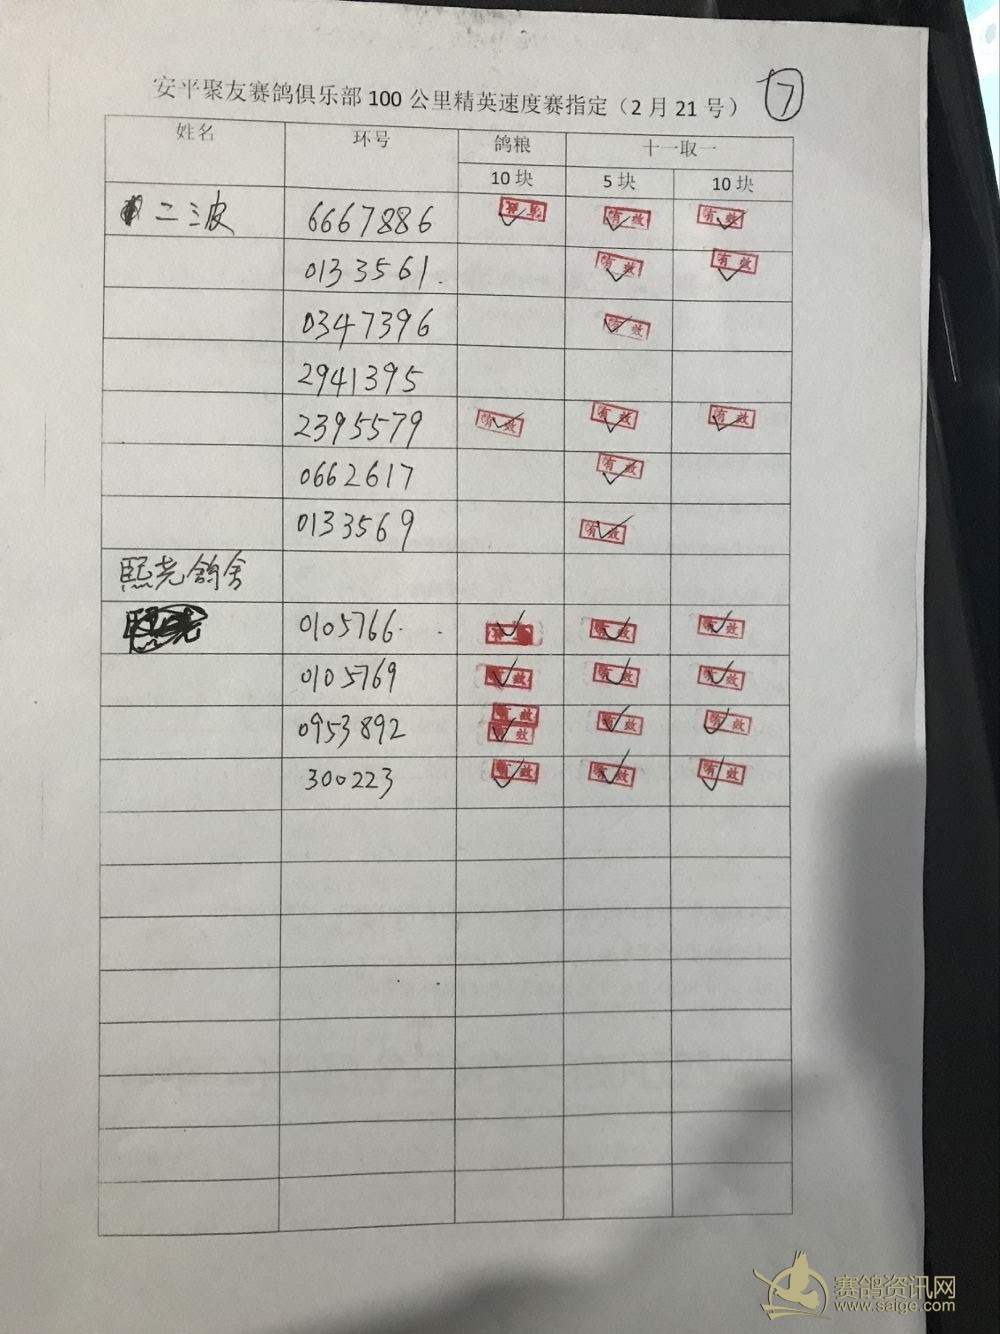 安平聚友赛鸽俱乐部 100 公里精英速度赛指定（2 月 21 号） 7
姓名 环号 鸽粮 十一取一
10 块 5 块 10 块
二波 6667886 有效 有效
0133561. 有效 有效
0347396 有效
2941395
2395579 有效 有效 有效
0662617 有效
0133569 有效
熙尧鸽舍
0105766. 有效 有效
0105769 有效 有效 有效
0953892 有效 有效 有效 有效
300223 有效 有效 有效
赛鸽资讯网
www.saige.com